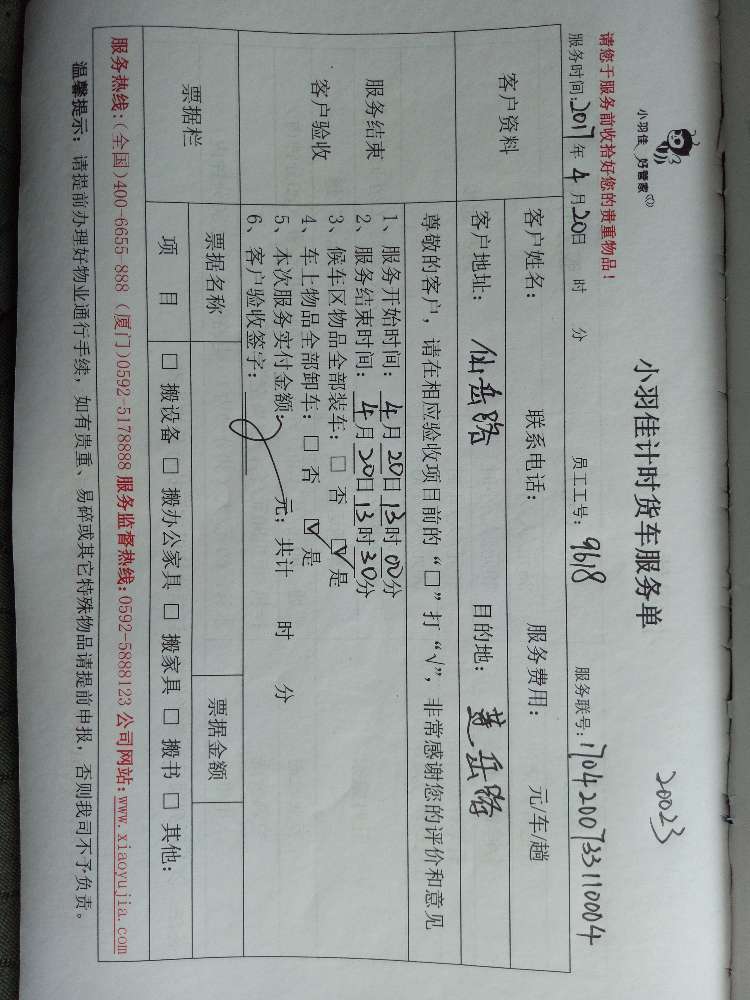 小羽佳 好管家
小羽佳计时货车服务单
20023
请您于服务前收拾好您的贵重物品！
服务时间：2017年4月20日 时 分 员工工号：9618 服务联号：1704200733110004
客户资料
客户姓名： 联系电话： 服务费用： 元/车/趟
客户地址：仙岳路 目的地：莲岳路
服务结束
客户验收
尊敬的客户，请在相应验收项目前的“□”打“√”，非常感谢您的评价和意见
1、服务开始时间：4月20日13时00分
2、服务结束时间：4月20日13时30分
3、候车区物品全部装车：□ 否 ☑ 是
4、车上物品全部卸车：□ 否 ☑ 是
5、本次服务实付金额： 元；共计 时 分
6、客户验收签字：
票据栏
票据名称 票据金额
项目 □ 搬设备 □ 搬办公家具 □ 搬家具 □ 搬书 □ 其他：
服务热线：(全国)400-6655-888（厦门)0592-5178888 服务监督热线：0592-5888123 公司网站：www.xiaoyujia.com
温馨提示：请提前办理好物业通行手续，如有贵重、易碎或其它特殊物品请提前申报，否则我司不予负责。